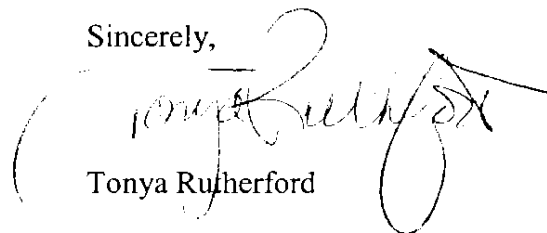 Sincerely,
Tonya Rutherford
Tonya Rutherford